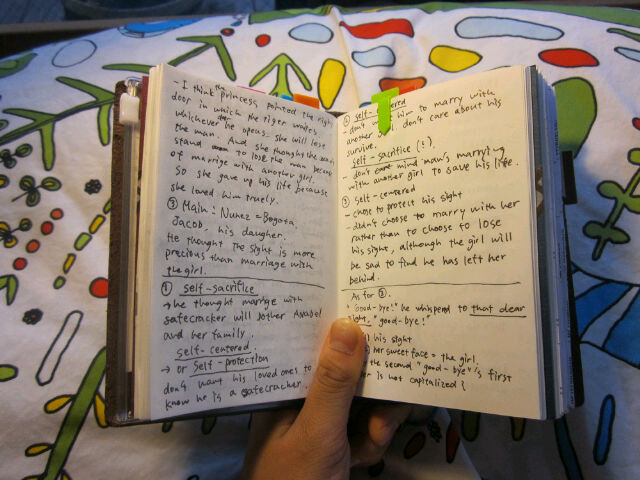 - I think the princess pointed the right
door in which the tiger waits.
whichever he opens. she will lose
the man. And she thought she can't
stand to lose the man because
of marrige with another girl.
So she gave up his life because
she loved him truely.
③ Main: Nunez - Bogota.
Jacob. his daugher.
He thought the sight is more
precious than marriage with
the girl.
① self-sacrifice
→ he thought marrige with
safecracker will bother Anabel
and her family.
self-centered.
→ or self-protection
don't want his loved ones to
know he is a safecracker.
② self-centered
- don't him to marry with
another girl. don't care about his
survive.
self-sacrifice (?)
- don't mind man's marrying
with another girl to save his life.
③ self-centered
- chose to protect his sight
- didn't choose to marry with her
rather than to choose to lose
his sight, although the girl will
be sad to find he has left her
behind.
As for ③.
"Good-bye!" he whisperd to that dear
sight, "good-bye!"
his sight
her sweet face → the girl.
the second "good-bye"'s first
is not capitalized?